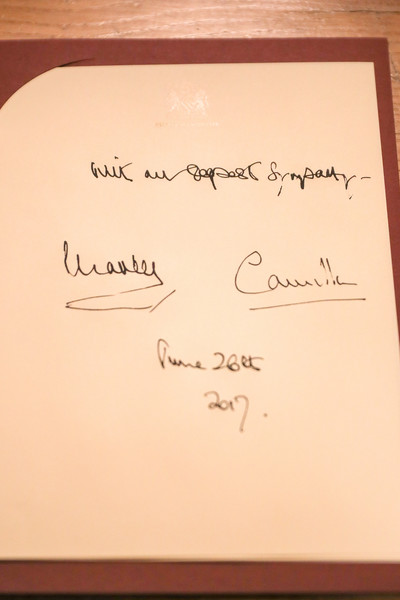 With our deepest sympathy –
Charles
Camilla
June 26th
2017.